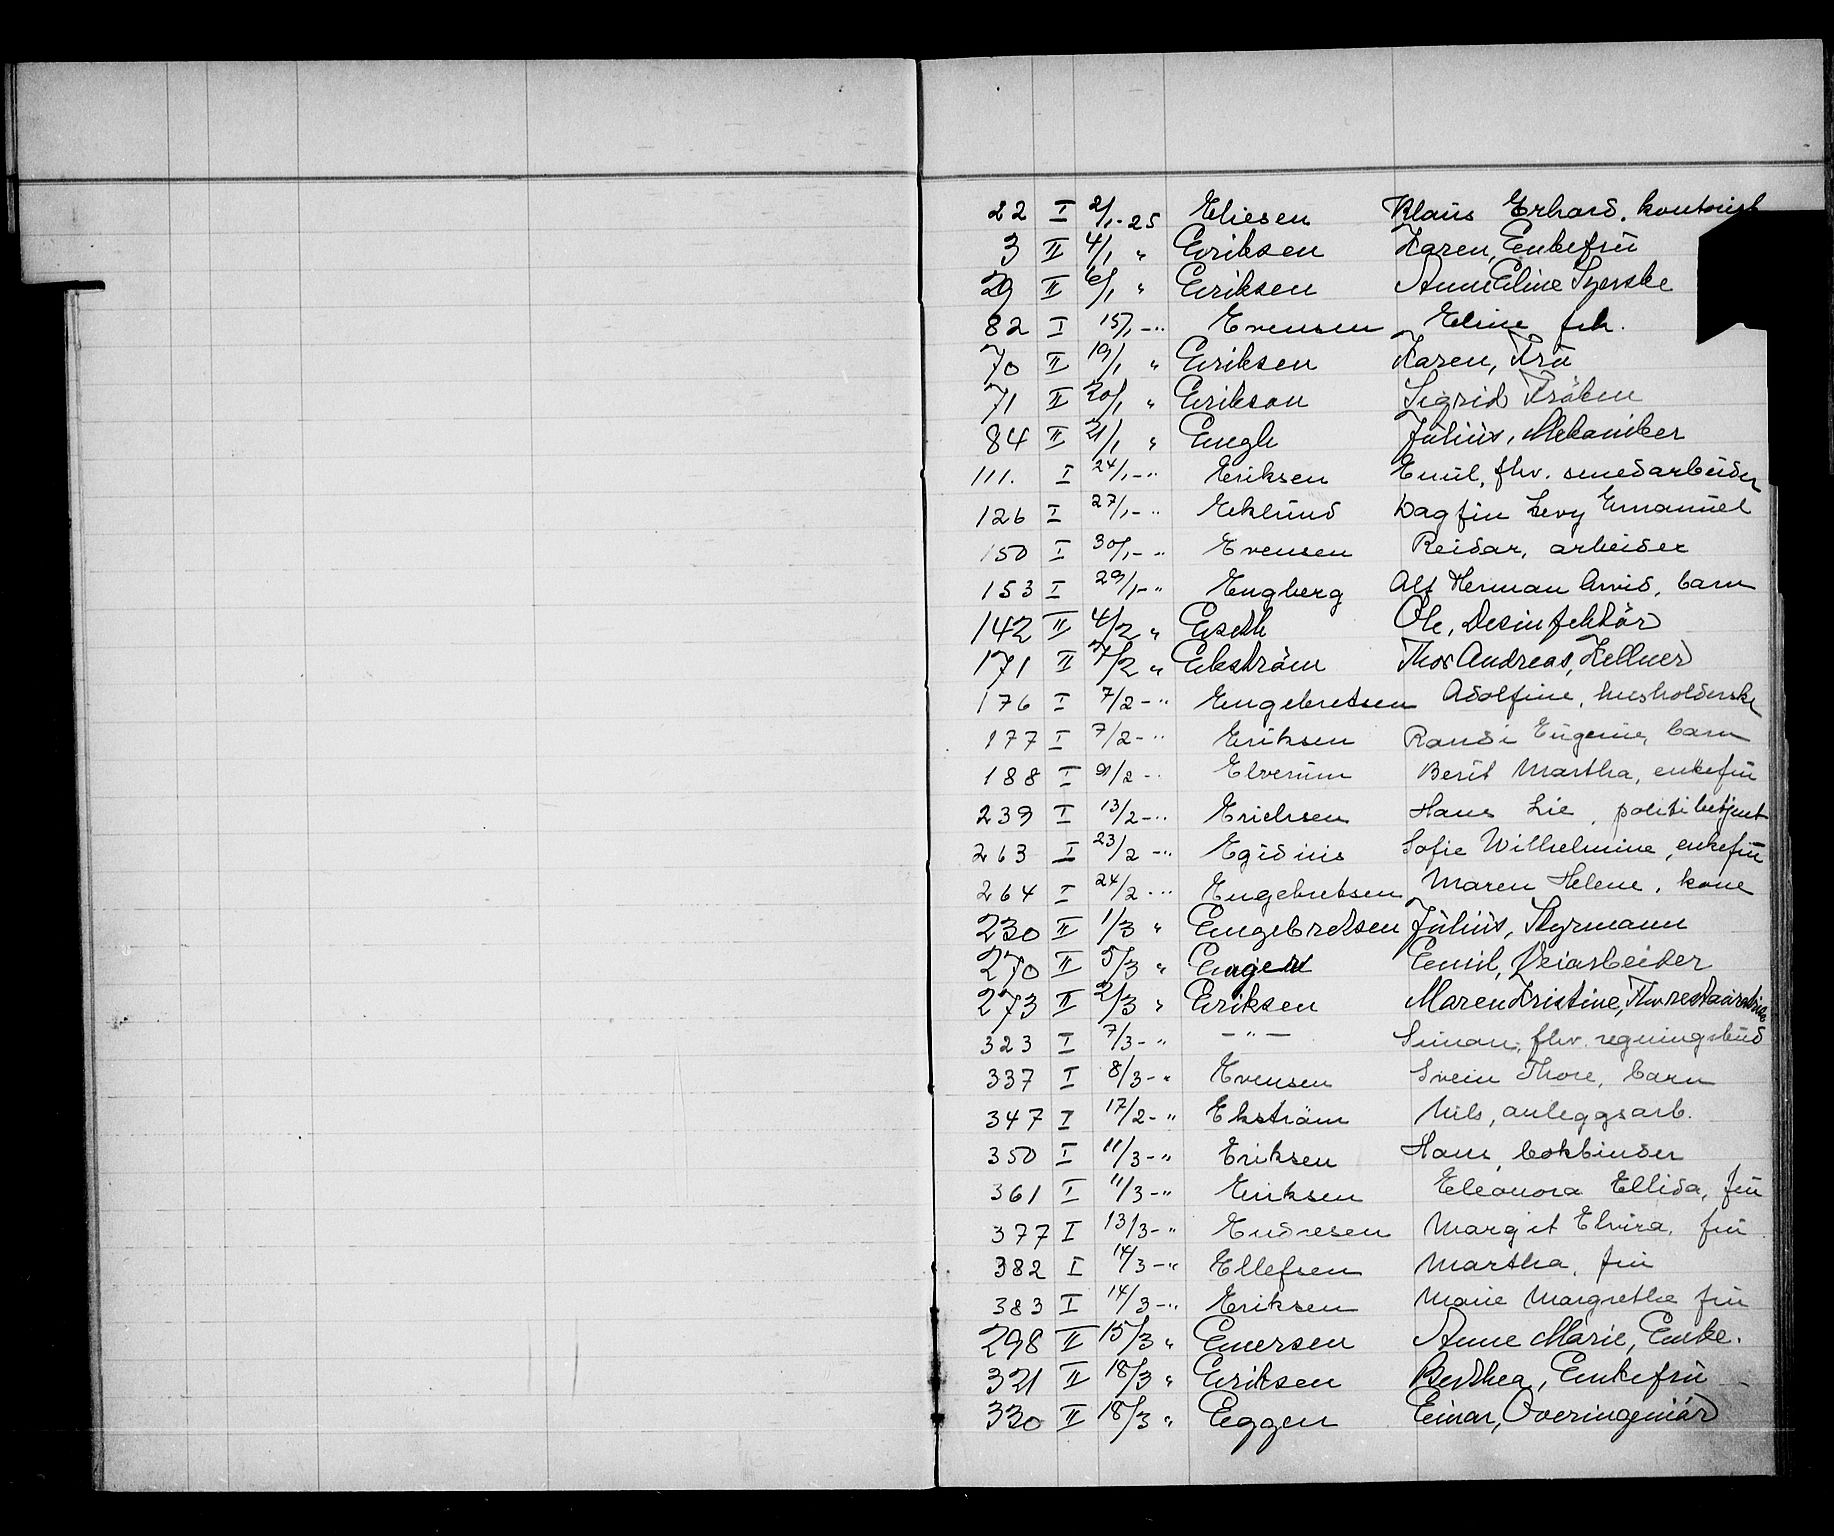 22 I 2/1-25 Eliesen Klaus Erhard, kontorist
3 II 4/1 " Eriksen Karen, Enkefrū
29 II 6/1 " Eriksen Anne Eline Syerske
82 I 15/1-" Evensen Eline frk.
70 II 19/1 " Eriksen Karen, Frū
71 II 20/1 " Erikson Sigrid Frøken
84 II 21/1 " Engh Jūliūs, Mekaniker
111. I 24/1-" Eriksen Emil, fhv. smedarbeider
126 I 27/1-" Eklūnd Dagfin Levy Emanūel
150 I 30/1-" Evensen Reidar, arbeider
153 I 29/1-" Engberg Alf Herman Arvid, barn
142 II 4/2 " Eseth Ole, Desinfektör
171 II 7/2 " Ekström Thor Andreas, Kellner
176 I 7/2-" Engebretsen Adolfine, husholderske
177 I 7/2-" Eriksen Randi Eūgenie, barn
188 I 9/2-" Elverūm Berit Martha, enkefrū
239 I 13/2-" Erichsen Hans Lie, politibetjent
263 I 23/2-" Egidius Sofie Wilhelmine, enkefrū
264 I 24/2-" Engebretsen Maren Helene, kone
230 II 1/3 " Engebretsen Jūliūs, Styrmann
270 II 5/3 " Engen Emil, Veiarbeider
273 II 2/3 " Eriksen Maren Kristine, Fhv
323 I 7/3-" -"- Simon, fhv. regningsbūd
337 I 8/3-" Evensen Svein Thore, barn
347 I 17/2-" Ekström Nils, anleggsarb.
350 I 11/3-" Eriksen Hans, bokbinder
361 I 11/3-" Eriksen Eleonora Ellida, frū
377 I 13/3-" Endresen Margit Elvira, frū
382 I 14/3-" Ellefsen Martha, frū
383 I 14/3-" Eriksen Marie Margrethe frū
298 II 15/3 " Emersen Anne Marie, Enke.
321 II 18/3 " Eriksen Berthea, Enkefrū
330 II 18/3 " Eggen Einar, Overingeniör